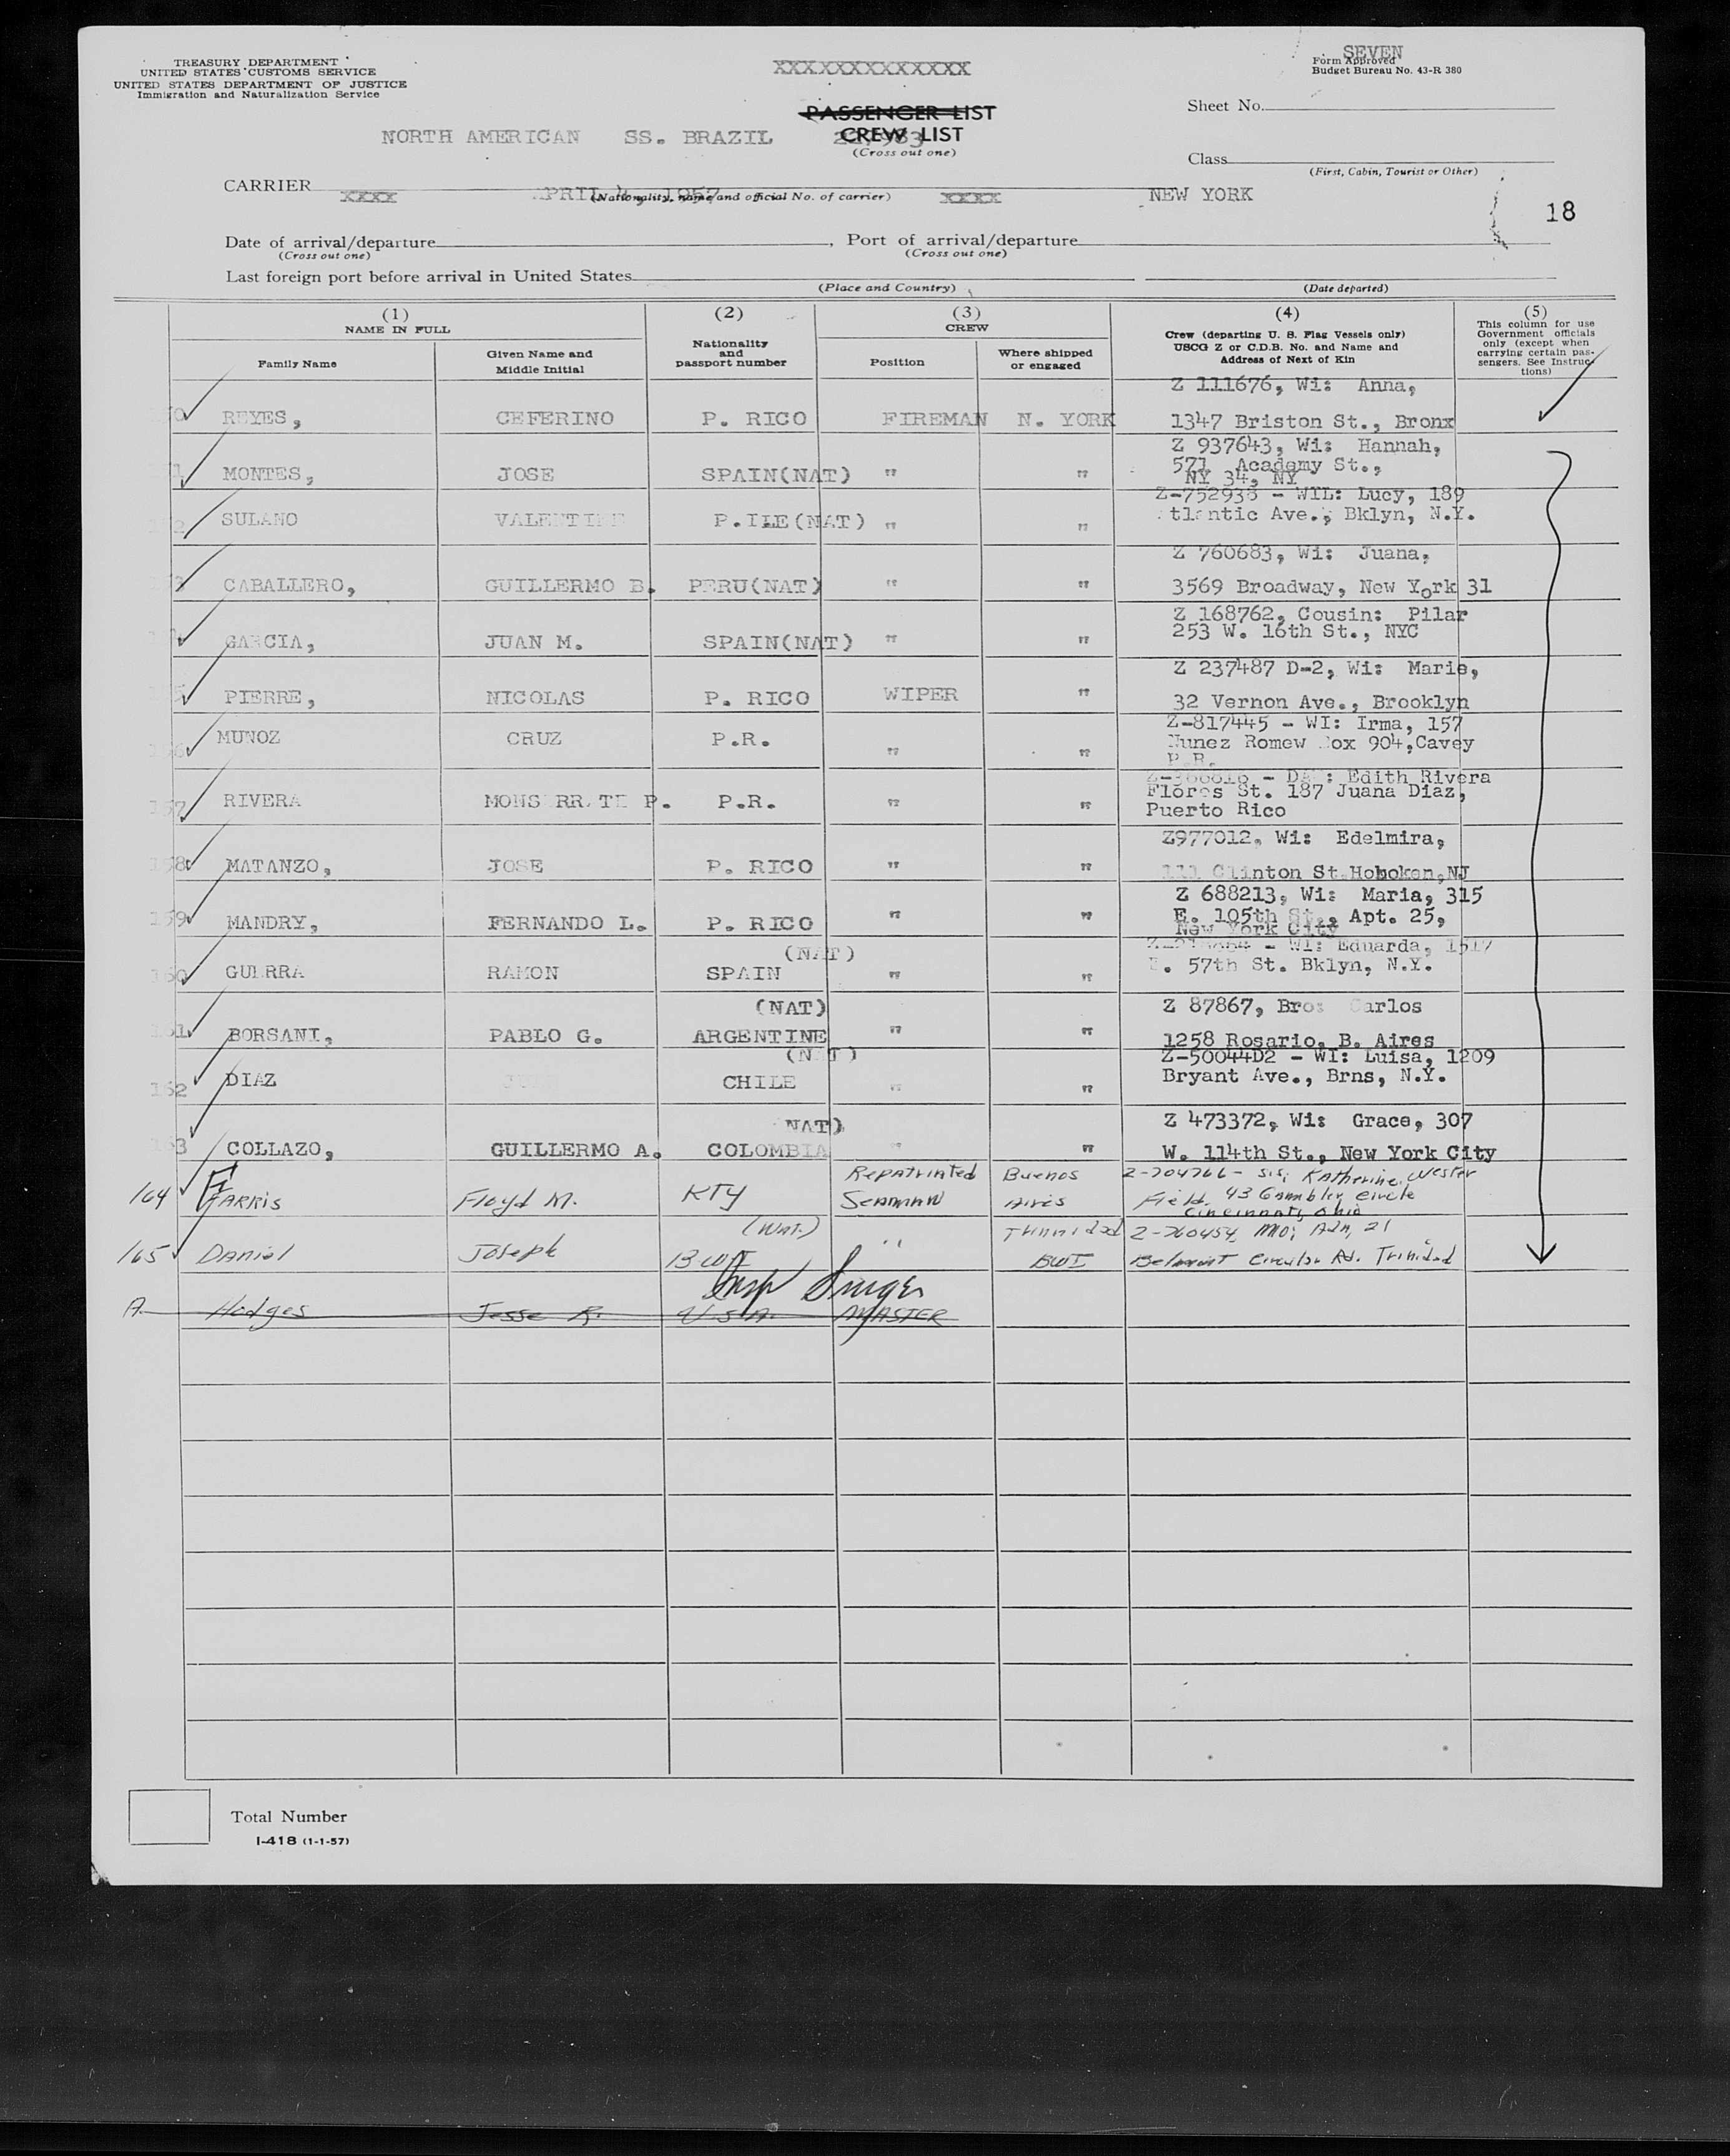 SEVEN
TREASURY DEPARTMENT
UNITED STATES CUSTOMS SERVICE
UNITED STATES DEPARTMENT OF JUSTICE
Immigration and Naturalization Service
XXXXXXXXXXXXX
Form Approved
Budget Bureau No. 43-R 380
PASSENGER LIST
CREW LIST
(Cross out one)
Sheet No.
NORTH AMERICAN SS. BRAZIL
Class
(First, Cabin, Tourist or Other)
CARRIER
XXXX APRIL 4, 1957 XXXX NEW YORK
(Nationality, name and official No. of carrier)
18
Date of arrival/departure , Port of arrival/departure
(Cross out one) (Cross out one)
Last foreign port before arrival in United States
(Place and Country) (Date departed)
(1) (2) (3) (4) (5)
NAME IN FULL Nationality and passport number CREW Crew (departing U. S. Flag Vessels only) USCG Z or C.D.B. No. and Name and Address of Next of Kin This column for use Government officials only (except when carrying certain passengers. See Instructions)
Family Name Given Name and Middle Initial Position Where shipped or engaged
Z 111676, Wi: Anna,
REYES, CEFERINO P. RICO FIREMAN N. YORK 1347 Briston St., Bronx
Z 937643, Wi: Hannah,
MONTES, JOSE SPAIN(NAT) " " 571 Academy St.,
NY 34, NY
Z-752938 - WIL: Lucy, 189
SULANO VALENTINE P.ILE(NAT) " " tlantic Ave., Bklyn, N.Y.
Z 760683, Wi: Juana,
CABALLERO, GUILLERMO B. PERU(NAT) " " 3569 Broadway, New York 31
Z 168762, Cousin: Pilar
GARCIA, JUAN M. SPAIN(NAT) " " 253 W. 16th St., NYC
Z 237487 D-2, Wi: Marie,
PIERRE, NICOLAS P. RICO WIPER " 32 Vernon Ave., Brooklyn
Z-817445 - WI: Irma, 157
MUNOZ CRUZ P.R. " " Nunez Romew Box 904,Cavey
P.R.
Edith Rivera
157 RIVERA MONSERRATE P. P.R. " " Flores St. 187 Juana Diaz,
Puerto Rico
Z977012, Wi: Edelmira,
158 MATANZO, JOSE P. RICO " " 111 Clinton St.Hoboken,NJ
Z 688213, Wi: Maria, 315
159 MANDRY, FERNANDO L. P. RICO " " E. 105th St., Apt. 25,
New York City
(NAT) WI: Eduarda, 1517
160 GUERRA RAMON SPAIN " " E. 57th St. Bklyn, N.Y.
(NAT) Z 87867, Bro: Carlos
161 BORSANI, PABLO G. ARGENTINE " " 1258 Rosario, B. Aires
(NAT) Z-50044D2 - WI: Luisa, 1209
162 DIAZ CHILE " " Bryant Ave., Brns, N.Y.
(NAT) Z 473372, Wi: Grace, 307
163 COLLAZO, GUILLERMO A. COLOMBIA " " W. 114th St., New York City
Repatriated Buenos Z-704766 - sis; Katherine, Wester
164 FARRIS Floyd M. KTY Seaman Aires Field, 43 Gambler Circle
Cincinnati, Ohio
(Nat.) Thrinidad Z-760454, MO; Ada, 21
165 Daniel Joseph BWI " BWI Belmont Circular Rd. Trinidad
Insp Singer
A. Hodges Jesse R. U.S.A. MASTER
Total Number
I-418 (1-1-57)